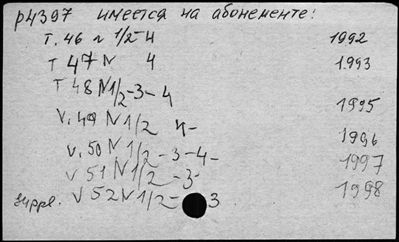 р4397 имеется на абонементе:
Т. 46 N 1/2-4 1992
Т 47 N 4 1993
Т 48 N 1/2-3-4
V. 49 N 1/2 4- 1995
V. 50 N 1/2-3-4- 1996
V 51 N 1/2-3- 1997
suppl. V 52 N 1/2- 3 1998